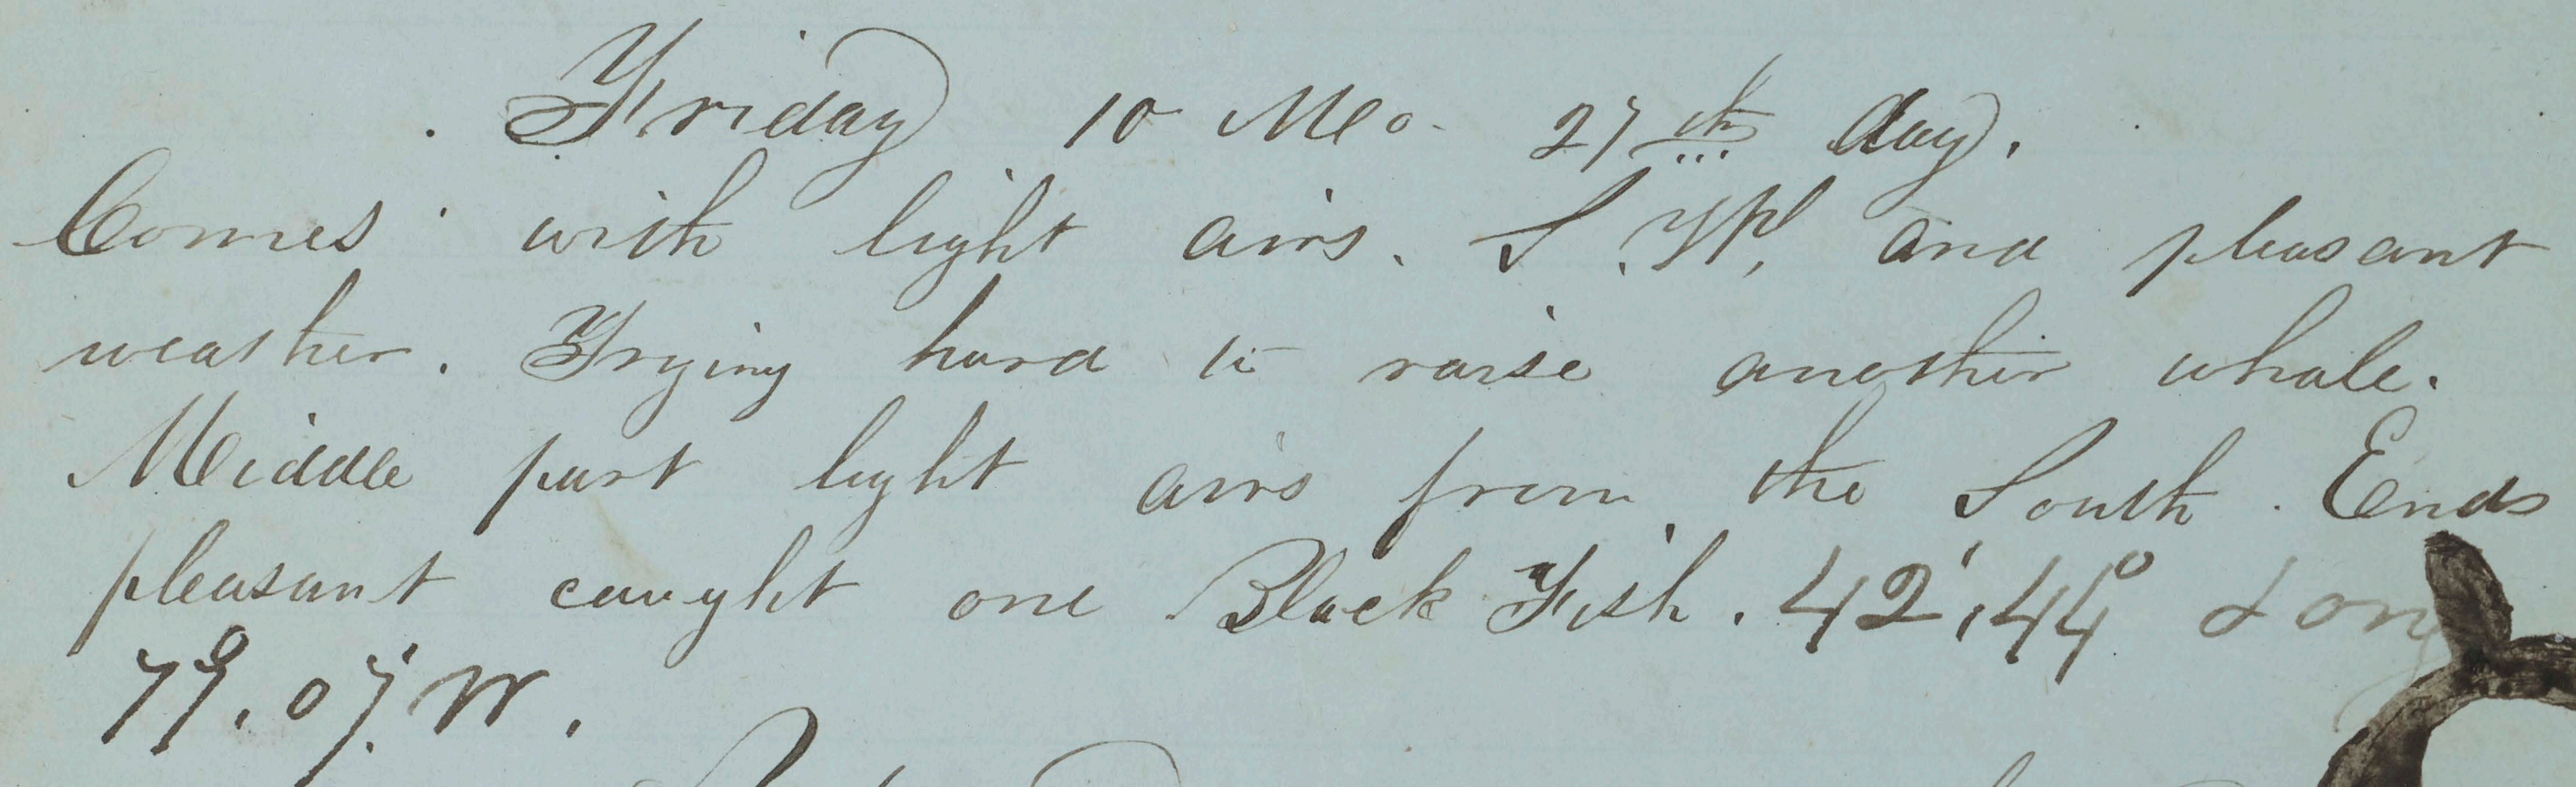 Friday 10 Mo. 27th day.
Comes with light airs. S.W, and pleasant
weather. Trying hard to raise another whale.
Middle part light airs from the South. Ends
pleasant caught one Black Fish. 42',44° Long
77°.07' W.